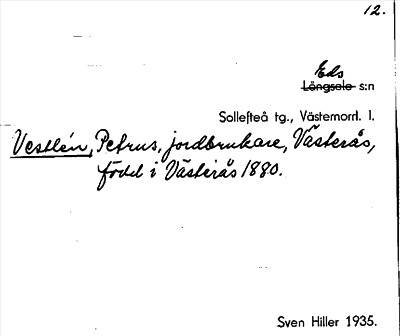 12.
Eds
Långsele s:n
Sollefteå tg., Västernorrl. l.
Vestlén, Petrus, jordbrukare, Västerås,
född i Västerås 1880.
Sven Hiller 1935.